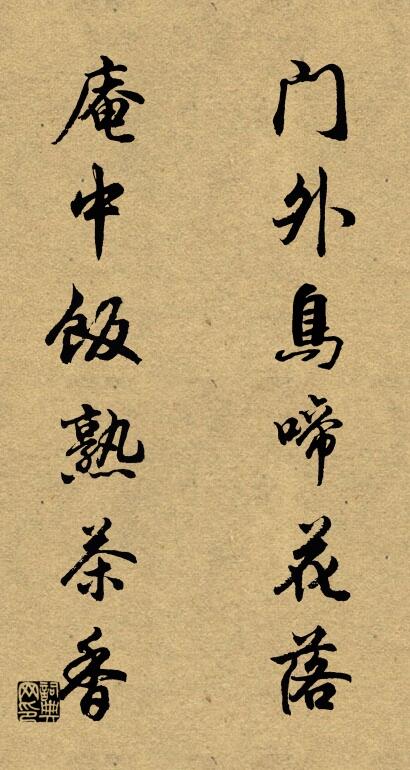 门外鸟啼花落
庵中饭熟茶香
词典网印